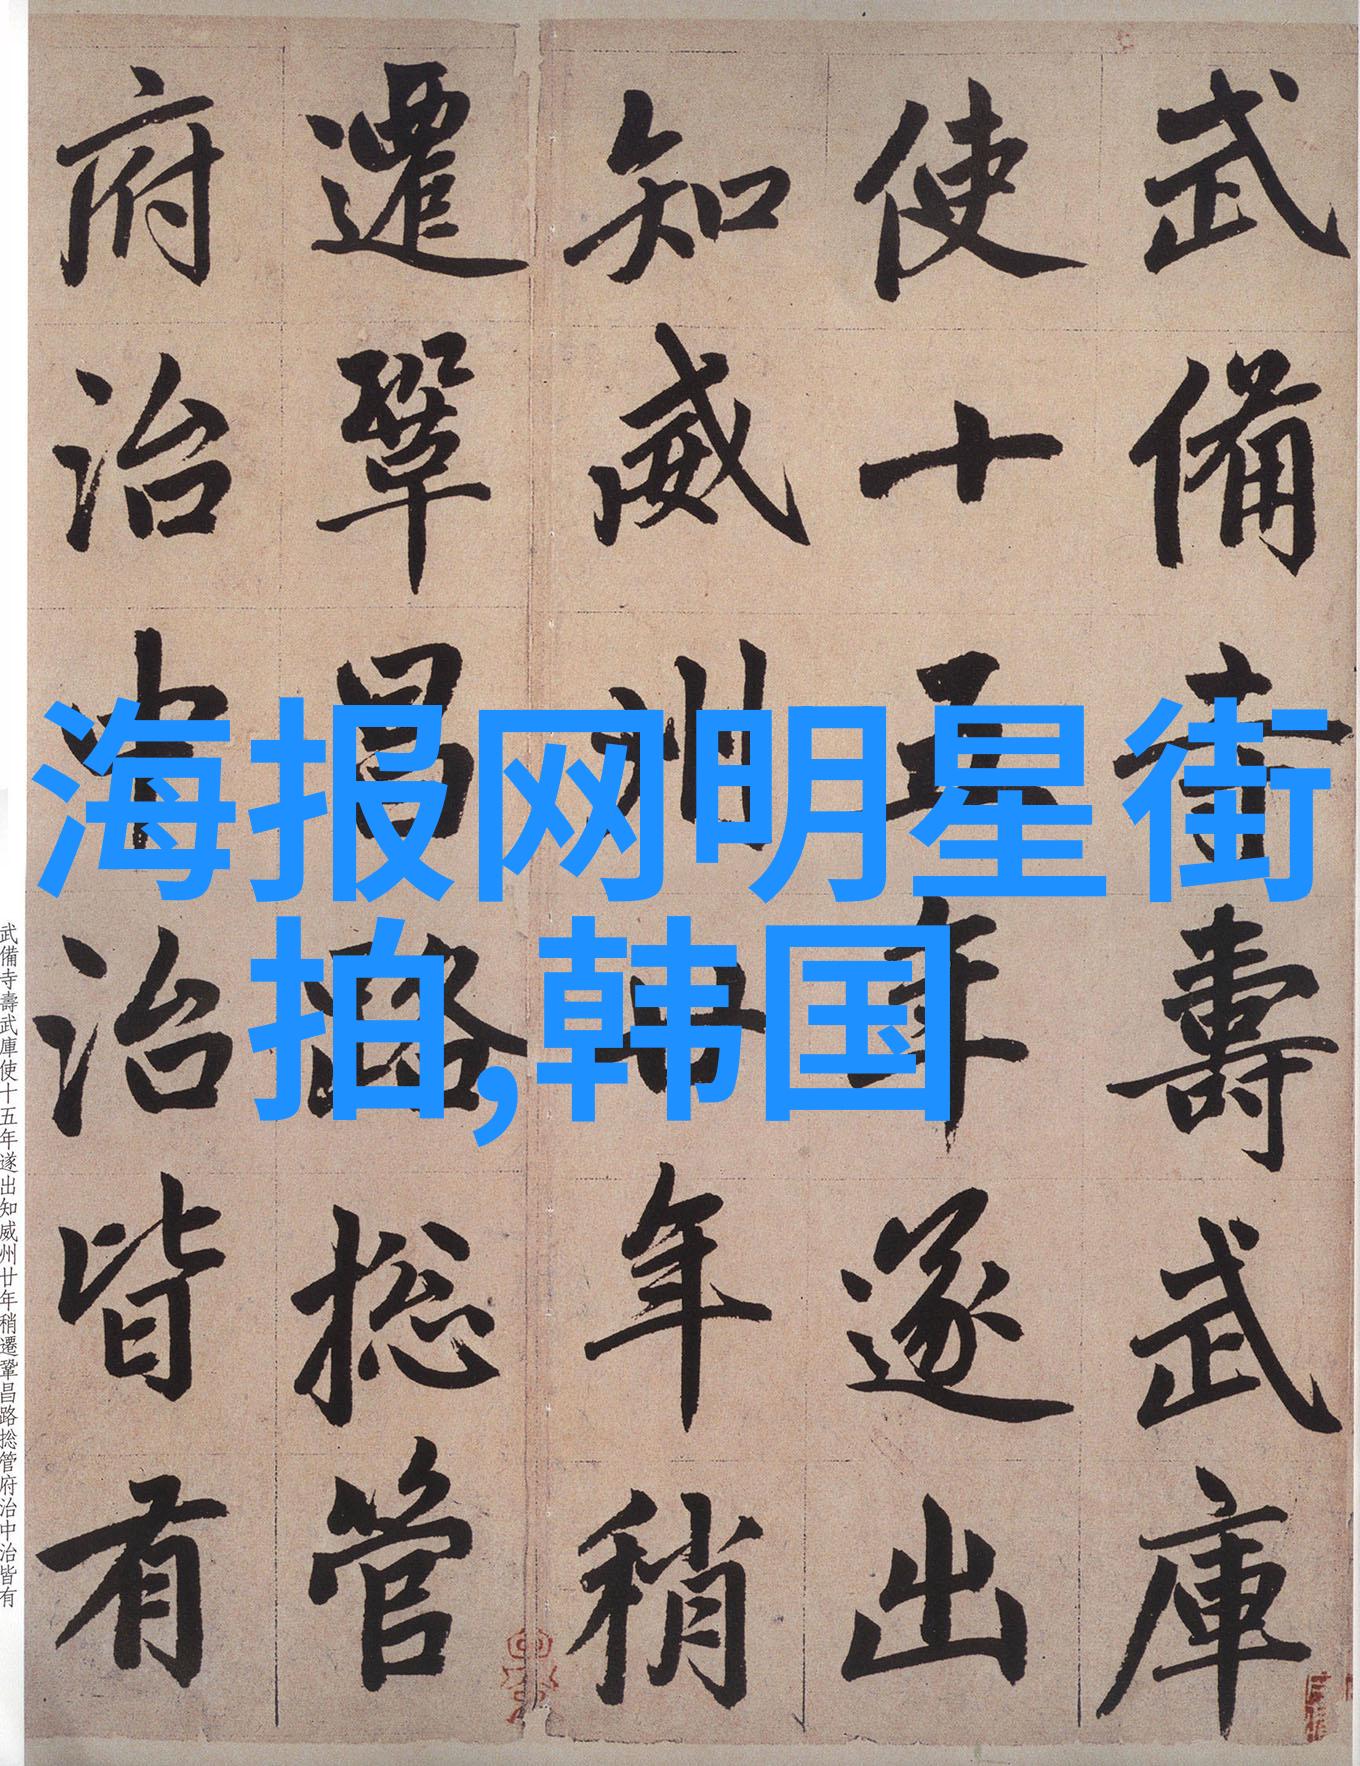 武備寺壽武庫
使十五年遂出
知威州廿年稍
遷鞏昌路捴管
府治中治皆有
武備寺壽武庫使十五年遂出知威州廿年稍遷鞏昌路捴管府治中治皆有
海报网明星街
拍,韩国